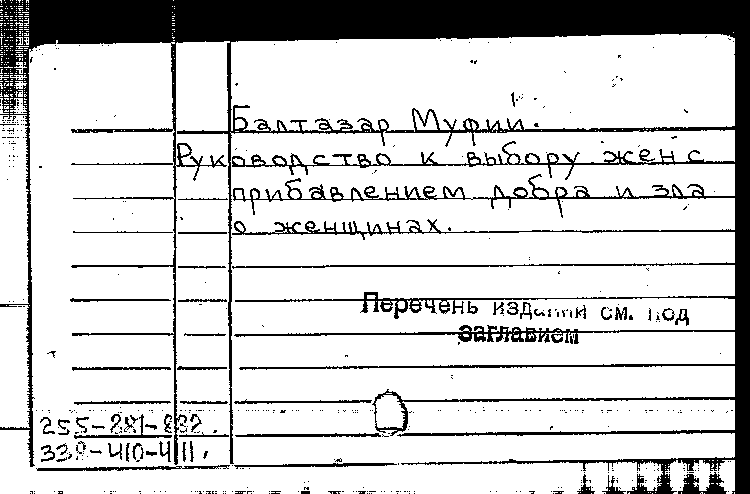 Балтазар Муфии.
Руководство к выбору жен с
прибавлением добра и зла
о женщинах.
Перечень изданий см. под
заглавием
255-281-882.
338-410-411.